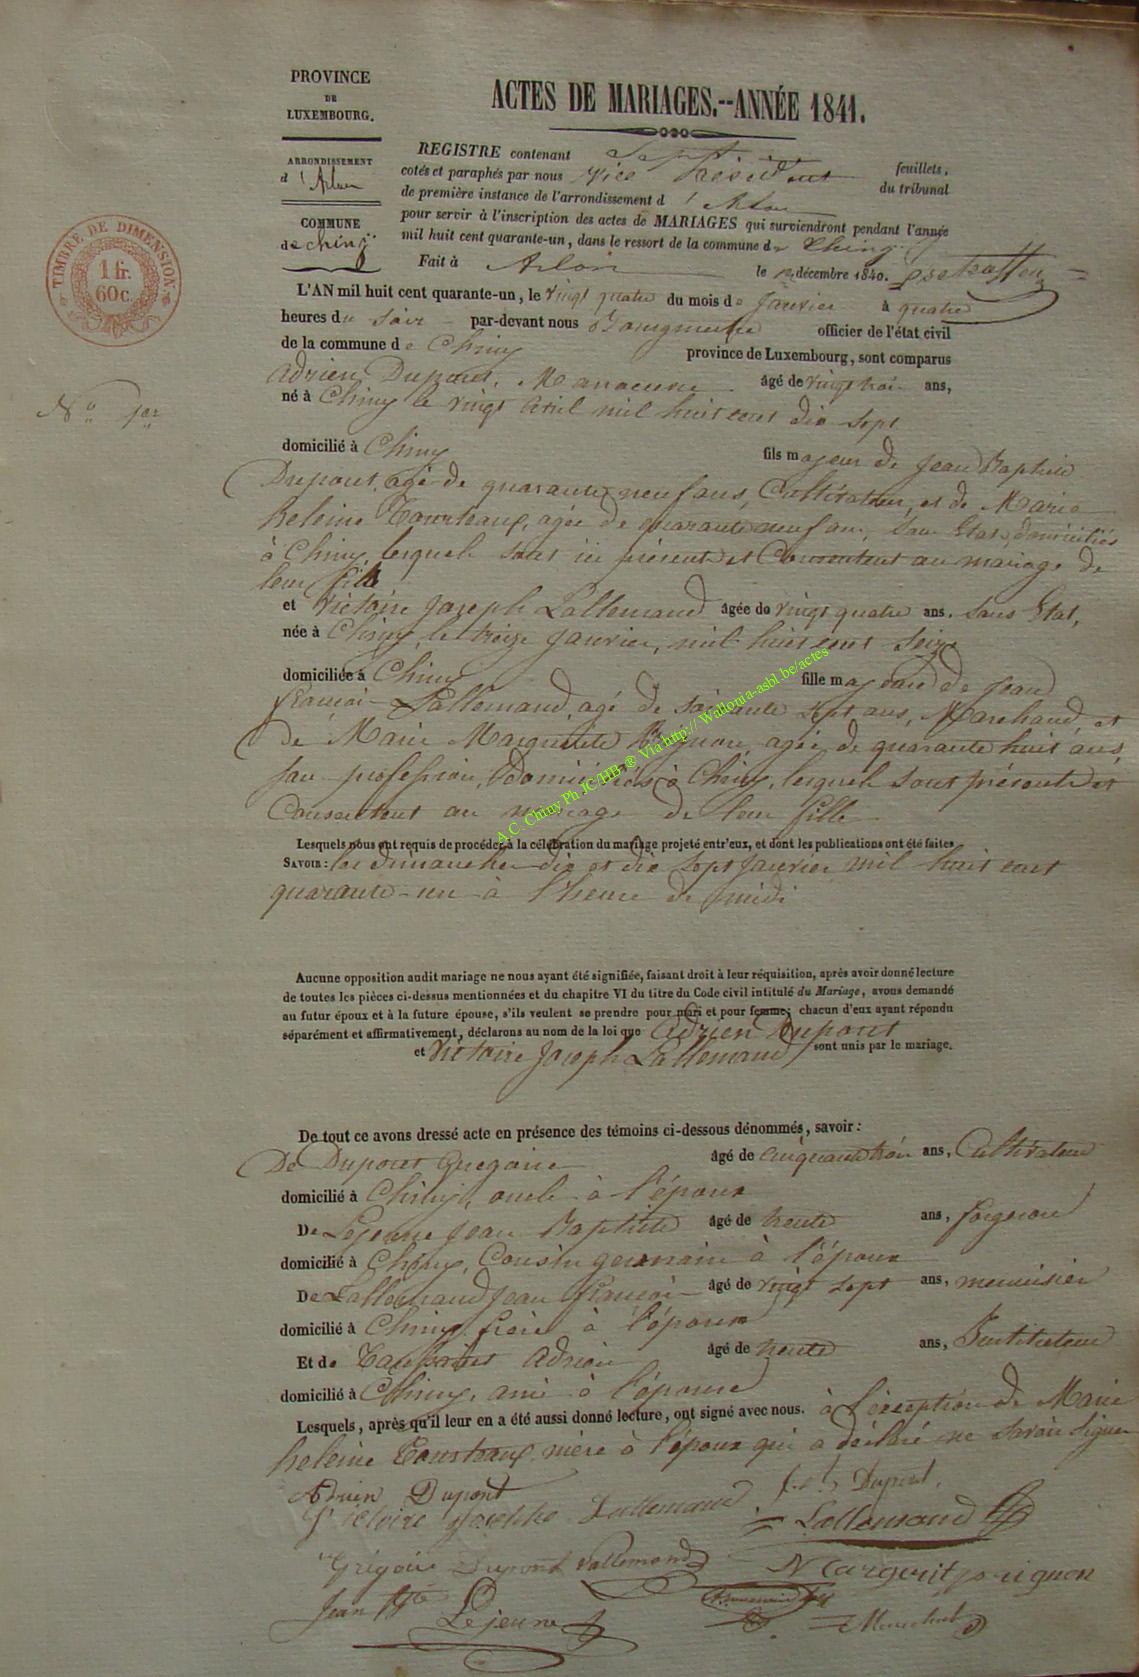 PROVINCE
DE
LUXEMBOURG.
ARRONDISSEMENT
d'Arlon
COMMUNE
de Chiny
TIMBRE DE DIMENSION
1 fr.
60 c.
N° 1er
ACTES DE MARIAGES.--ANNÉE 1841.
REGISTRE contenant Sept feuillets,
cotés et paraphés par nous Vice Président du tribunal
de première instance de l'arrondissement d'Arlon
pour servir à l'inscription des actes de MARIAGES qui surviendront pendant l'année
mil huit cent quarante-un, dans le ressort de la commune de Chiny
Fait à Arlon le décembre 1840.
L'AN mil huit cent quarante-un, le vingt quatre du mois de Janvier à quatre
heures du Soir par-devant nous officier de l'état civil
de la commune de Chiny province de Luxembourg, sont comparus
Adrien Dupont, Manoeuvre âgé de vingt trois ans,
né à Chiny le vingt Avril mil huit cent dix sept
domicilié à Chiny fils majeur de Jean Baptiste
Dupont, agé de quarante neuf ans, Cultivateur, et de Marie
heleine Tourteaux, agée de quarante neuf ans, Sans Etat, domiciliés
à Chiny, lesquels sont ici présents et Consentent au mariage de
leur fils
et Victoire Joseph Lallemand âgée de vingt quatre ans. Sans Etat,
née à Chiny, le treize Janvier, mil huit cent Seize
domiciliée à Chiny fille majeure de Jean
françois Lallemand, agé de Soixante Sept ans, Marchand, et
de Marie Marguerite Pirignon, agée de quarante huit ans,
San profession, domiciliés à Chiny, lesquels sont présents et
Consentent au mariage de leur fille
A.C. Chiny Ph JC/HB ® Via http:// Wallonia-asbl.be/actes
Lesquels nous ont requis de procéder à la célébration du mariage projeté entr'eux, et dont les publications ont été faites
SAVOIR: les dimanches dix et dix Sept Janvier mil huit cent
quarante-un à l'heure de midi
Aucune opposition audit mariage ne nous ayant été signifiée, faisant droit à leur réquisition, après avoir donné lecture
de toutes les pièces ci-dessus mentionnées et du chapitre VI du titre du Code civil intitulé du Mariage, avons demandé
au futur époux et à la future épouse, s'ils veulent se prendre pour mari et pour femme; chacun d'eux ayant répondu
séparément et affirmativement, déclarons au nom de la loi que Adrien Dupont
et Victoire Joseph Lallemand sont unis par le mariage.
De tout ce avons dressé acte en présence des témoins ci-dessous dénommés, savoir:
De Dupont Gregoire âgé de cinquante trois ans, Cultivateur
domicilié à Chiny, oncle à l'époux
De Lejeune Jean Baptiste âgé de trente ans, forgeron
domicilié à Chiny, Cousin germain à l'époux
De Lallemand Jean françois âgé de vingt sept ans, menuisier
domicilié à Chiny frère à l'épouse
Et de Adrien âgé de trente ans, Instituteur
domicilié à Chiny, ami à l'épouse
Lesquels, après qu'il leur en a été aussi donné lecture, ont signé avec nous. à l'exception de Marie
heleine Tourteaux, mère à l'époux qui a déclaré ne savoir Signer
Adrien Dupont
Victoire Josephe Lallemand
Dupont
Lallemand
Grégoire Dupont
Lallemand
Margerit pirignon
Jean Bte Lejeune
Marechal